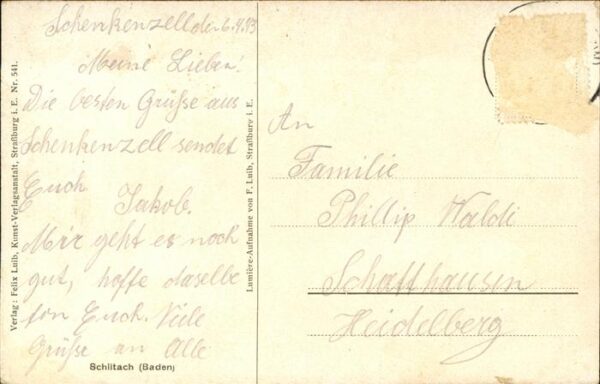 Schenkenzell de. 6.4.13
Meine Lieben!
Die besten Grüße aus
Schenkenzell sendet
Euch
Jakob.
Mir geht es noch
gut, hoffe daselbe
fon Euch. Viele
Grüße an Alle
Schlitach (Baden)
Verlag: Felix Luib, Kunst-Verlagsanstalt, Straßburg i. E. Nr. 541.
Lumière-Aufnahme von F. Luib, Straßburg i. E.
An
Familie
Phillip Waldi
Schatthausen
Heidelberg